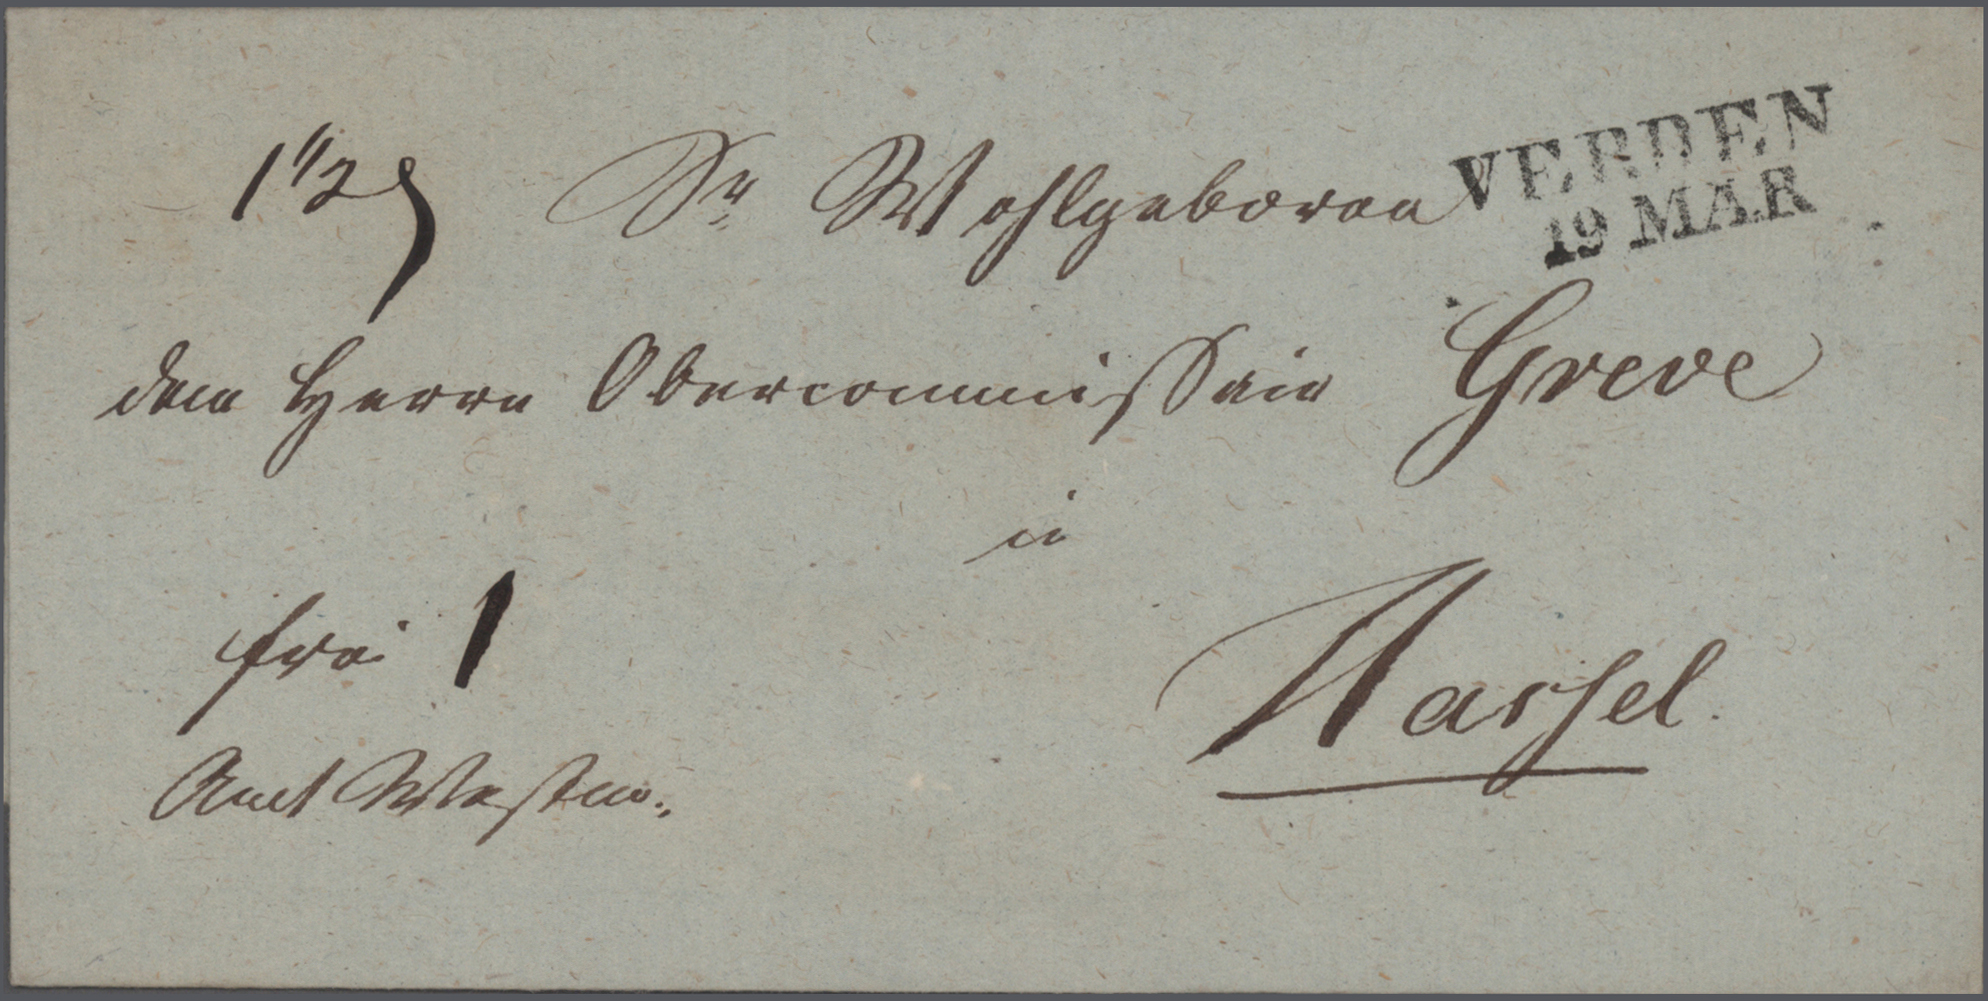 1 1/2
Sr Wohlgeboren
VERDEN
19 MAR
dem Herrn Obercommissair Greve
in
frei 1
Hassel.
Amt Westen.